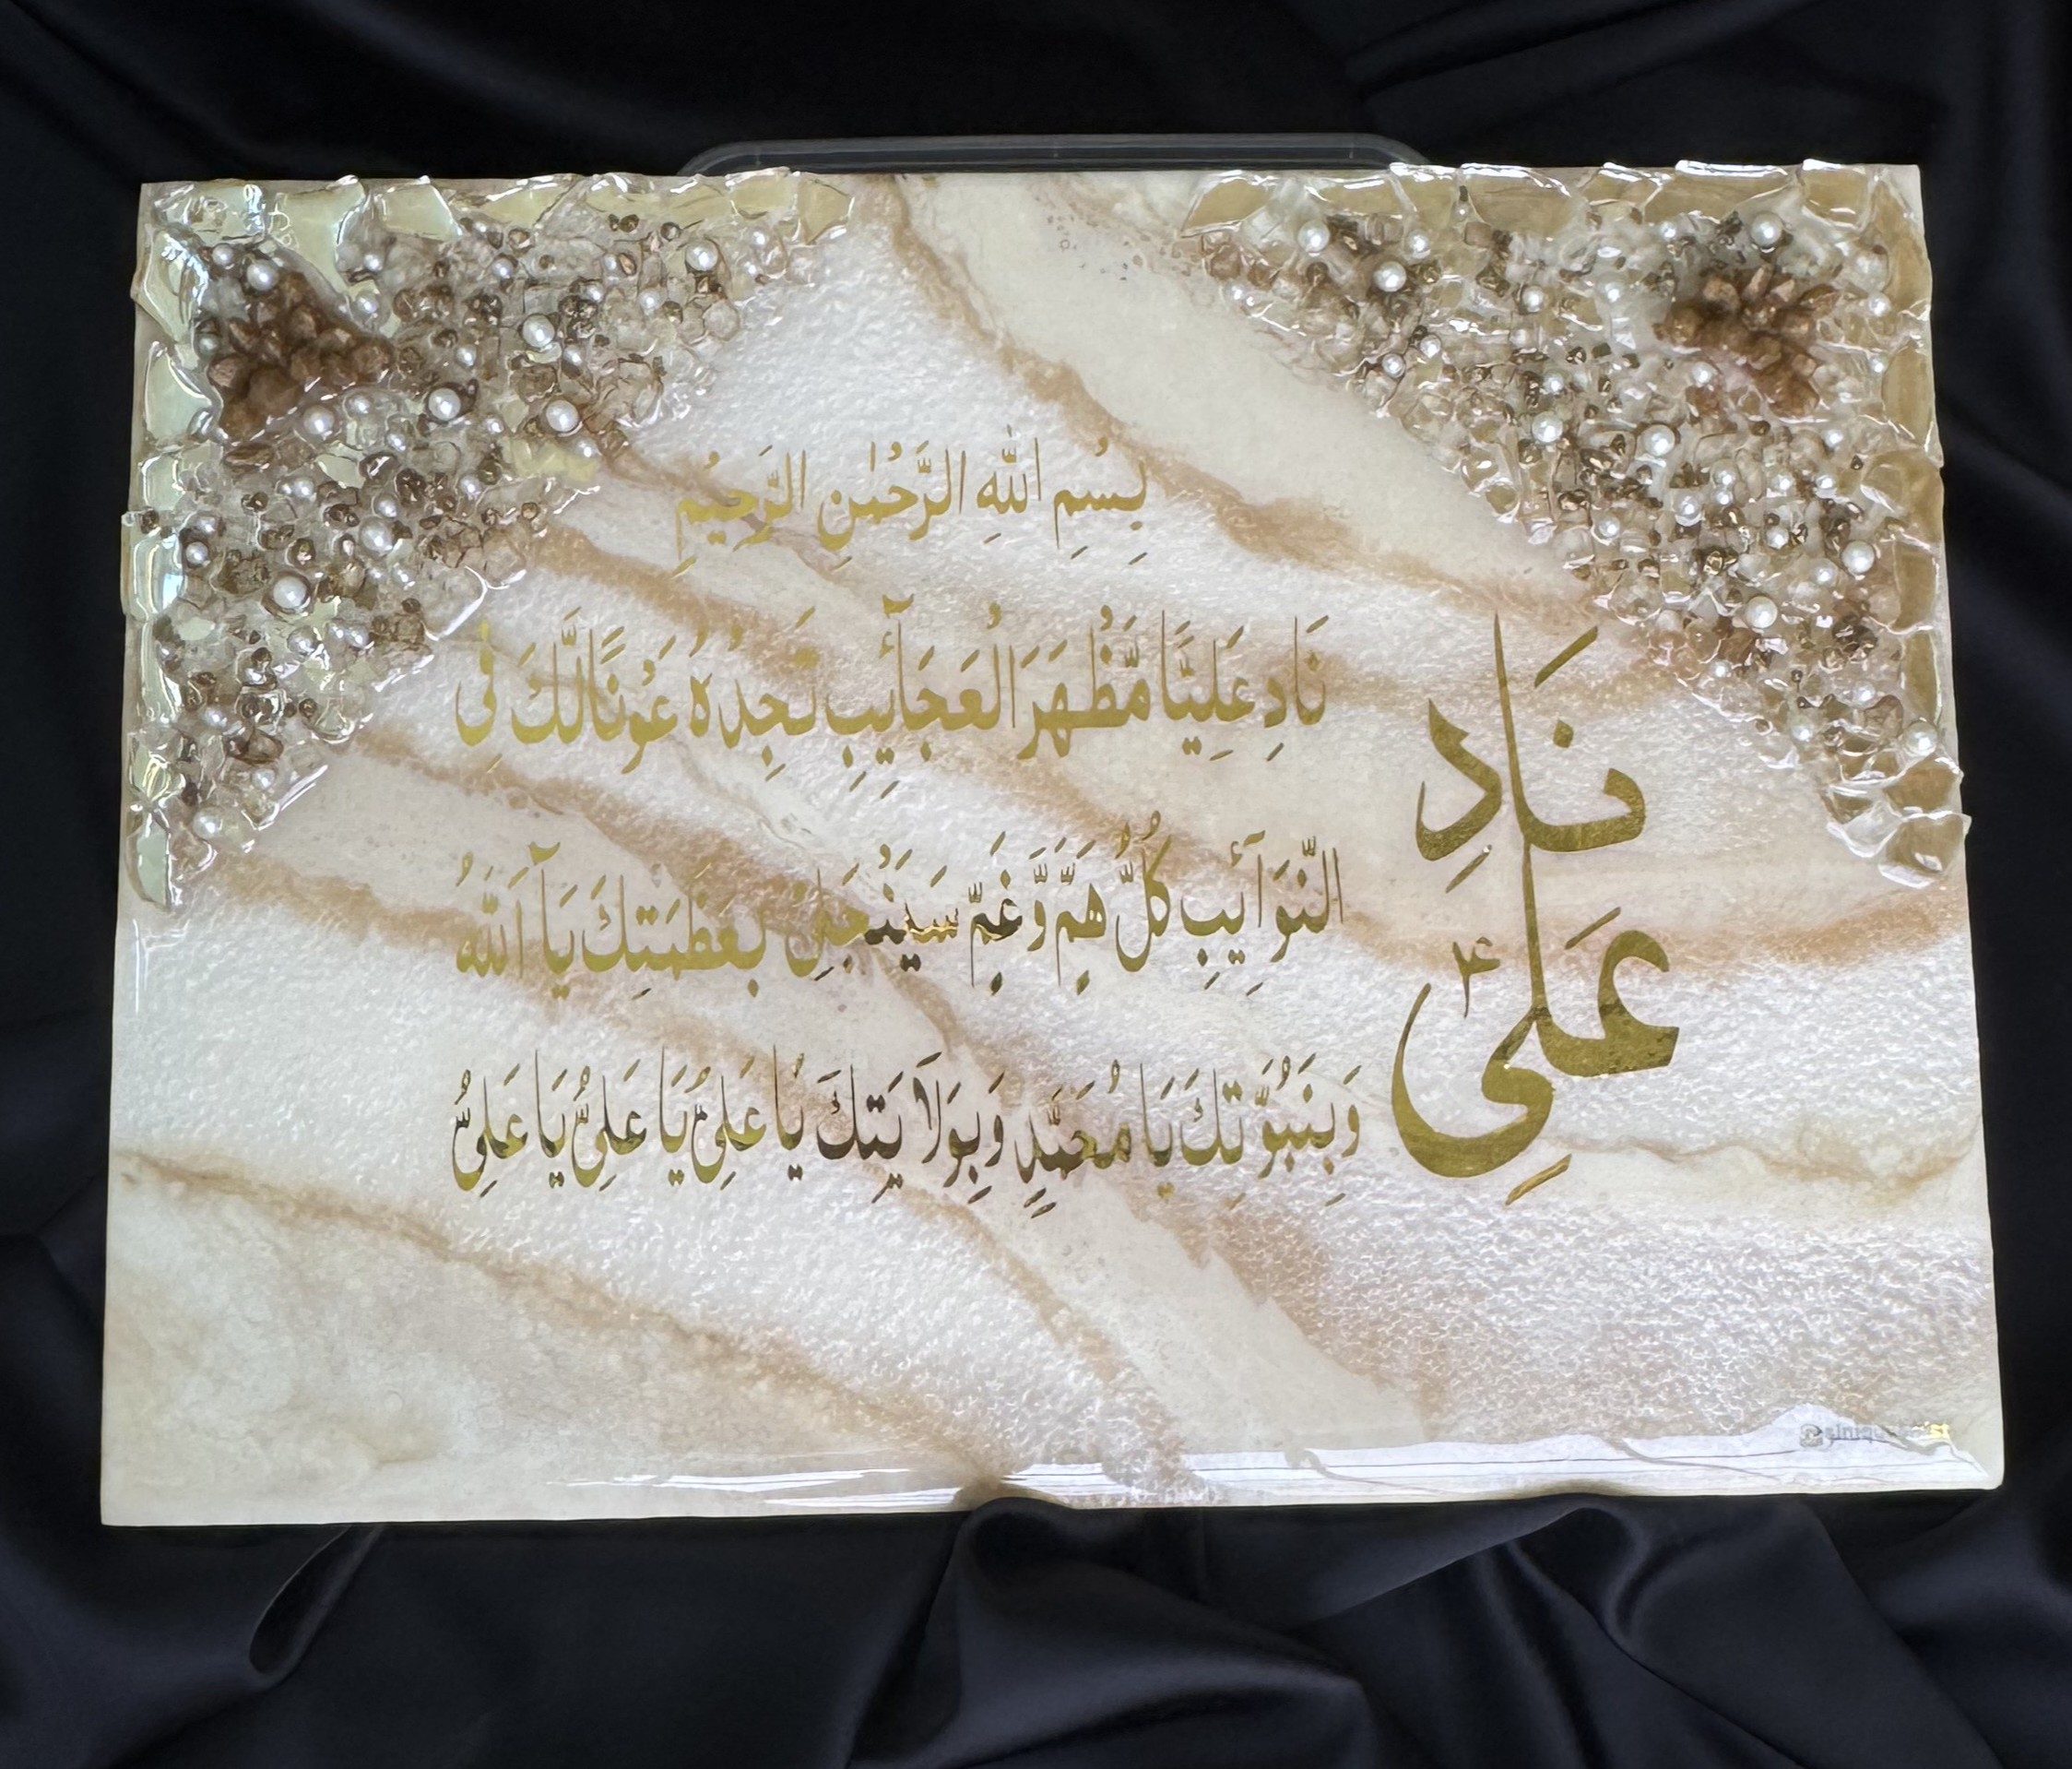 بِسْمِ اللهِ الرَّحْمٰنِ الرَّحِيْمِ
نَادِ عَلِي ؑ
نَادِ عَلِيًّا مَّظْهَرَ الْعَجَآئِبِ تَجِدْهُ عَوْنًا لَّكَ فِي
النَّوَآئِبِ كُلُّ هَمٍّ وَّ غَمٍّ سَيَنْجَلِيْ بِعَظَمَتِكَ يَآ اَللّٰهُ
وَبِنَبُوَّتِكَ يَا مُحَمَّدٍ وَبِوَلَا يَتِكَ يَا عَلِيُّ يَا عَلِيُّ يَا عَلِيُّ